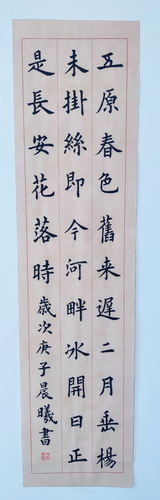 五原春色舊来遲二月垂楊
未掛絲即今河畔冰開日正
是長安花落時歲次庚子晨曦書